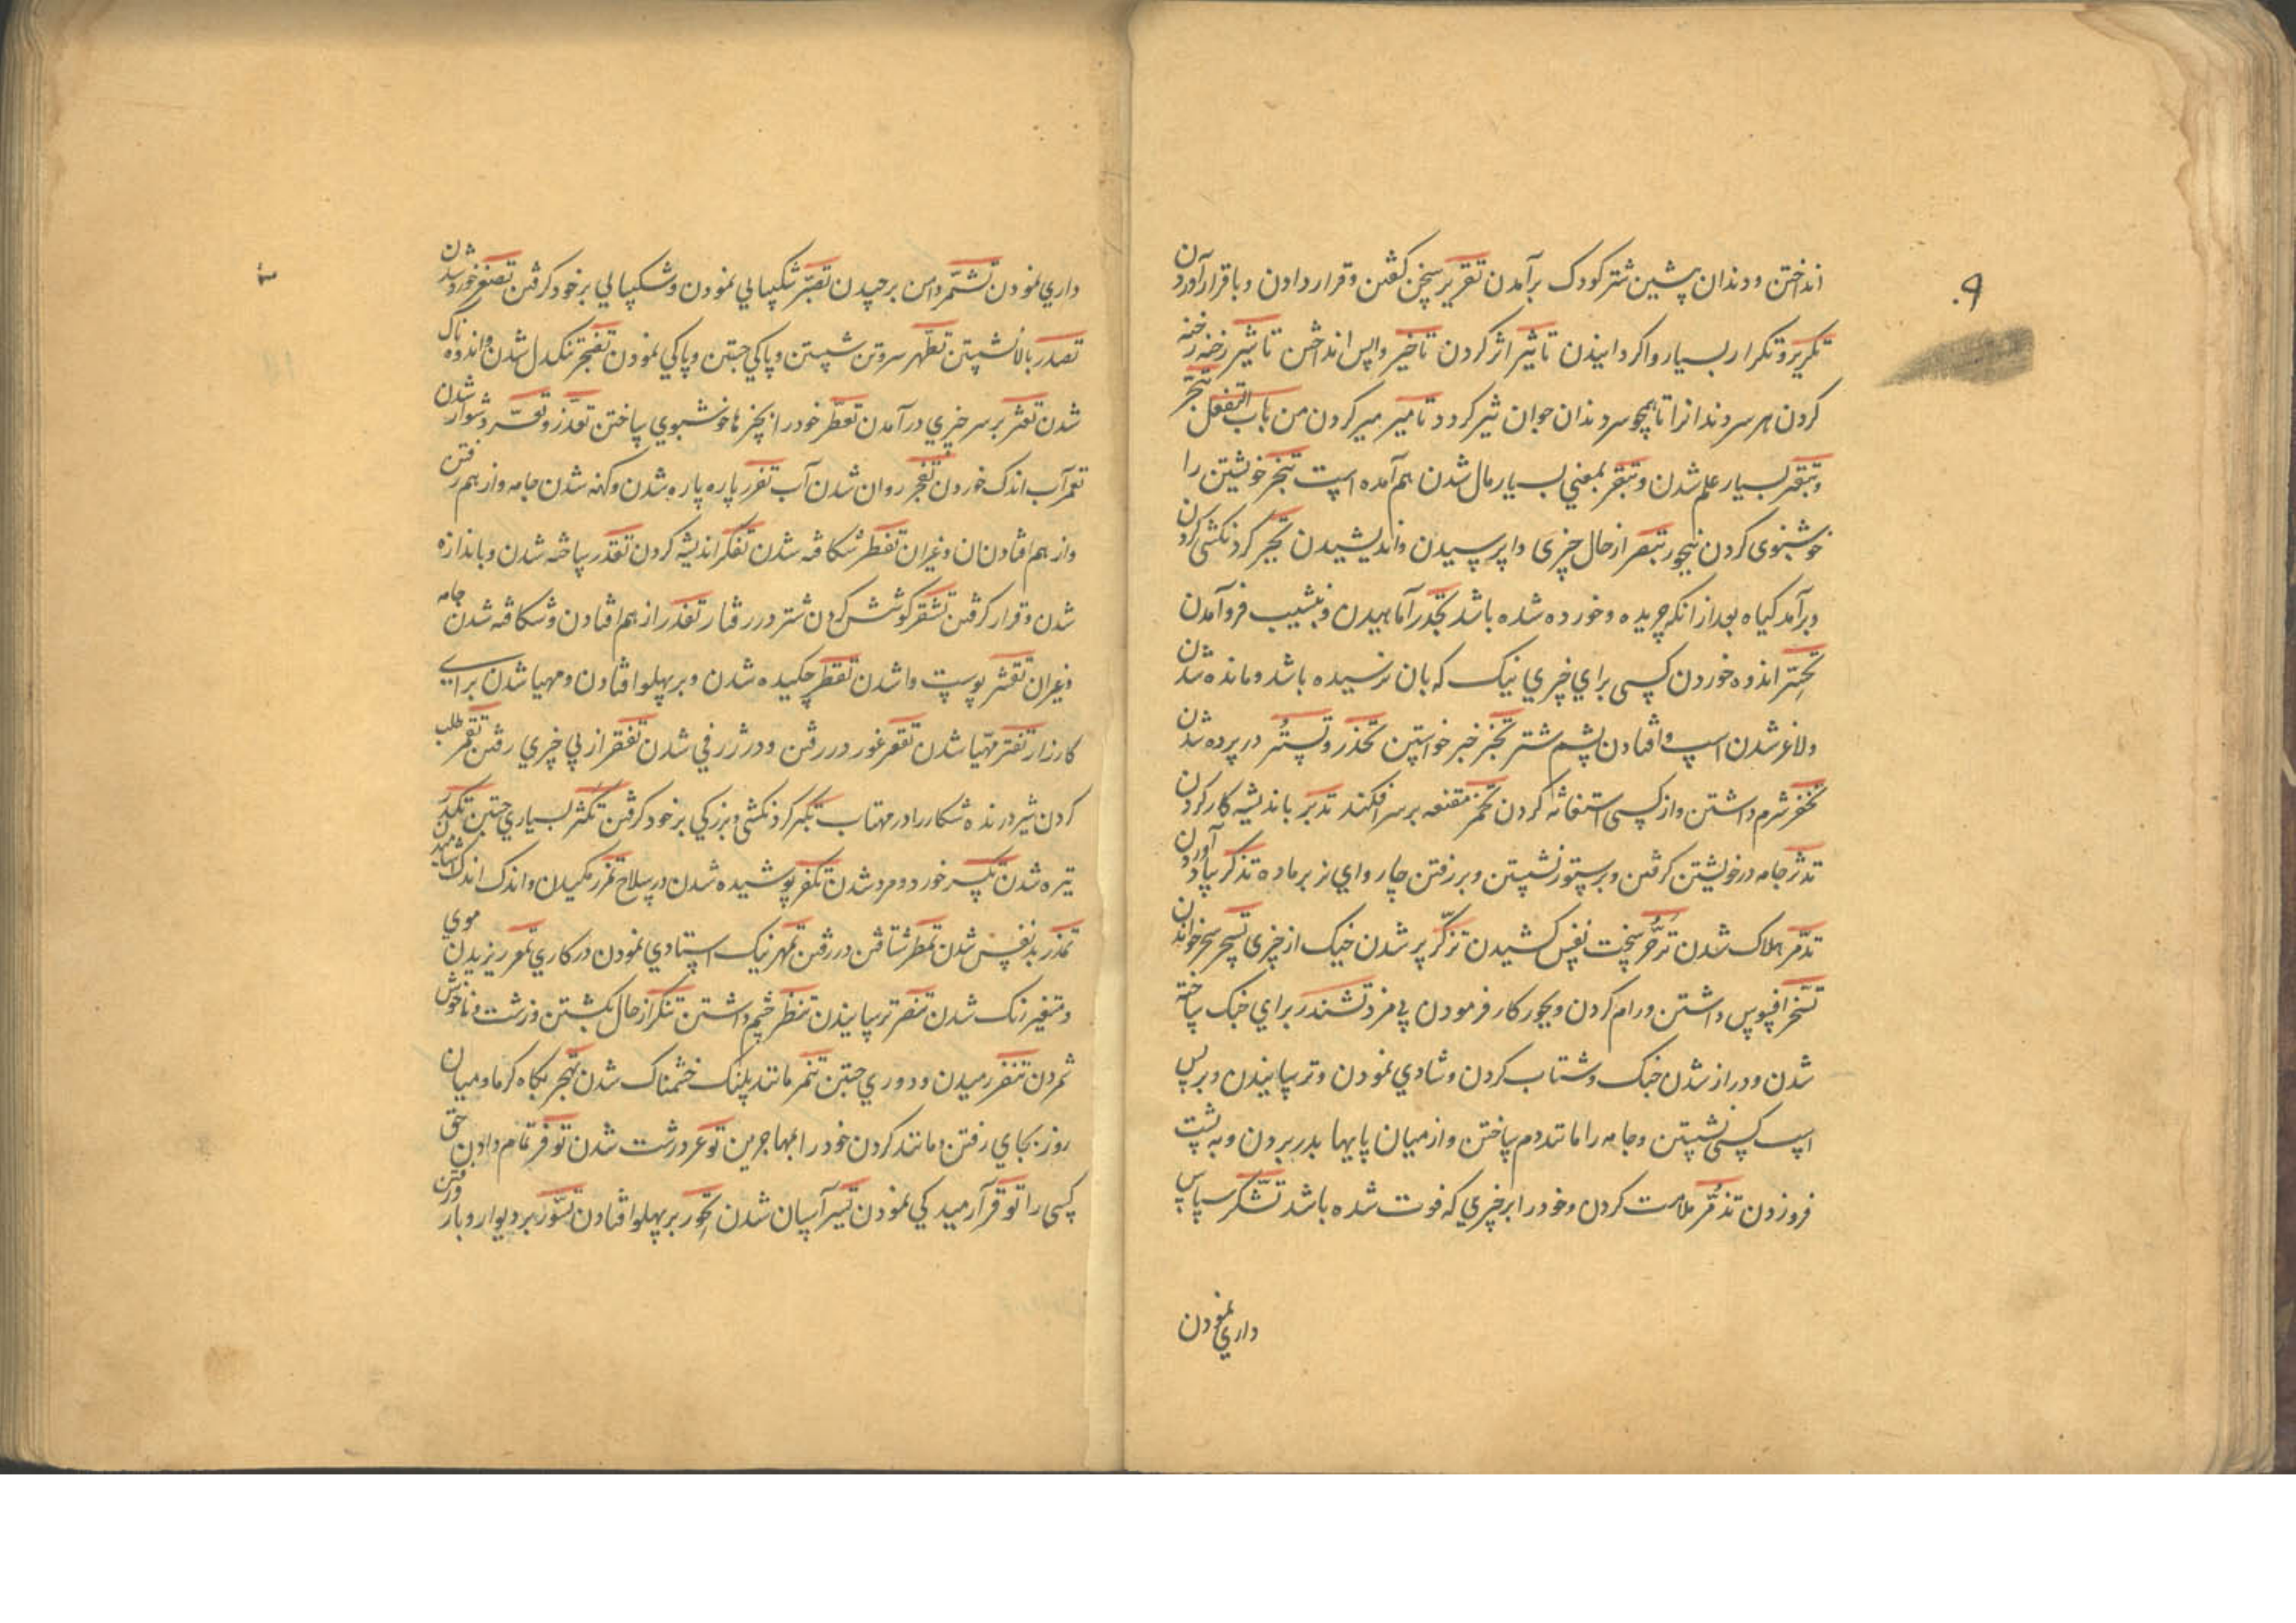 انداختن و دندان پیشین شتر کودک برآمدن تقریر سخن گفتن و قرار دادن و باقرار آوردن
۹۰
تکریر و تکرار بسیار واکردانیدن تاثیر اثر کردن تاخیر واپس انداختن تاشیر رخنه رخنه
کردن هر سر دندانرا تا همچو سر دندان جوان تیز کردد تامیر میر کردن من باب التفعل تبحر
و تبقر بسیار علم شدن و تبقر بمعنی بسیار مال شدن هم آمده است تبخر خویشتن را
خوشبوی کردن ببخور تبصر از حال چیزی وا پرسیدن و اندیشیدن تجبر کردنکشی کردن
و برآمد کیاه بعد از انکه چریده و خورده شده باشد تحدر آماسیدن و بنشیب فرو آمدن
تحسّر اندوه خوردن کسی برای چیزی نیک که بان نرسیده باشد و مانده شدن
و لاغر شدن اسپ و افتادن پشم شتر تخبر خبر خواستن تخدر و تستّر در پرده شدن
تخفر شرم داشتن و از کسی استغاثه کردن تخمر مقنعه بر سر افکند تدبر باندیشه کار کردن
تدثر جامه در خویشتن کرفتن و بر ستور نشستن و بر رفتن چاروای نر بر ماده تذکر بیاد آوردن
تدمّر هلاک شدن تزحّر سخت نفس کشیدن تزکّر پر شدن خیک از چیزی تسحر سحر خواندن
تسخر افسوس داشتن و رام کردن و بجور کار فرمودن بی مزد تشذر برای جنک ساخته
شدن و دراز شدن جنک و شتاب کردن و شادی نمودن و ترسانیدن و بر پس
اسپ کسی نشستن و جامه را مانند دم ساختن و از میان پایها بدر بردن و به پشت
فرو زدن تذمّر ملامت کردن و خود را بر چیزی که فوت شده باشد تشکر سپاس
داری نمودن
داری نمودن تشمّر دامن برچیدن تصبّر شکیبایی نمودن و شکیبایی بر خود کرفتن تصغر خورد شدن
تصدر بالا نشستن تطهر سر و تن شستن و پاکی جستن و پاکی نمودن تضجر تنکدل شدن و اندوه ناک
شدن تعثر بر سر چیزی در آمدن تعطّر خود را بچیزها خوشبوی ساختن تعذر و تعسّر دشوار شدن
تغمر آب اندک خوردن تفجر روان شدن آب تفزر پاره پاره شدن و کهنه شدن جامه و از هم رفتن
و از هم افتادن نان و غیر ان تفطر شکافته شدن تفکر اندیشه کردن تقدر ساخته شدن و باندازه
شدن و قرار کرفتن تشقر کوشش کردن شتر در رفتار تفذر از هم افتادن و شکافته شدن جامه
و غیر ان تقشر پوست وا شدن تقطر چکیده شدن و بر پهلو افتادن و مهیا شدن برای
کارزار تقتر مهیّا شدن تقعر غور در رفتن و در ژرفی شدن تفقر از پی چیزی رفتن تقمر طلب
کردن شیر درنده شکار را در مهتاب تکبر کردنکشی و بزرکی بر خود کرفتن تکثر بسیاری جستن تکدر
تیره شدن تکسر خورد و مرد شدن تکفر پوشیده شدن در سلاح تمزر مکیدن و اندک اندک اشامیدن
تمذر بد نفس شدن تمطر شتافتن در رفتن تمهر نیک استادی نمودن در کاری تمعر ریزیدن موی
و متغیر رنک شدن تنصر ترسا نیدن تنظر چشم داشتن تنکر از حال بکشتن و زشت و ناخوش
شمردن تنفر رمیدن و دوری جستن تنمر مانند پلنک خشمناک شدن تهجر بکاه کرما و میان
روز بجای رفتن و مانند کردن خود را بمهاجرین توعر درشت شدن توفر تمام دادن حق
کسی را توقر آرمیدکی نمودن تیسر آسان شدن تجور بر پهلو افتادن تسوّر بر دیوار و بار رفتن